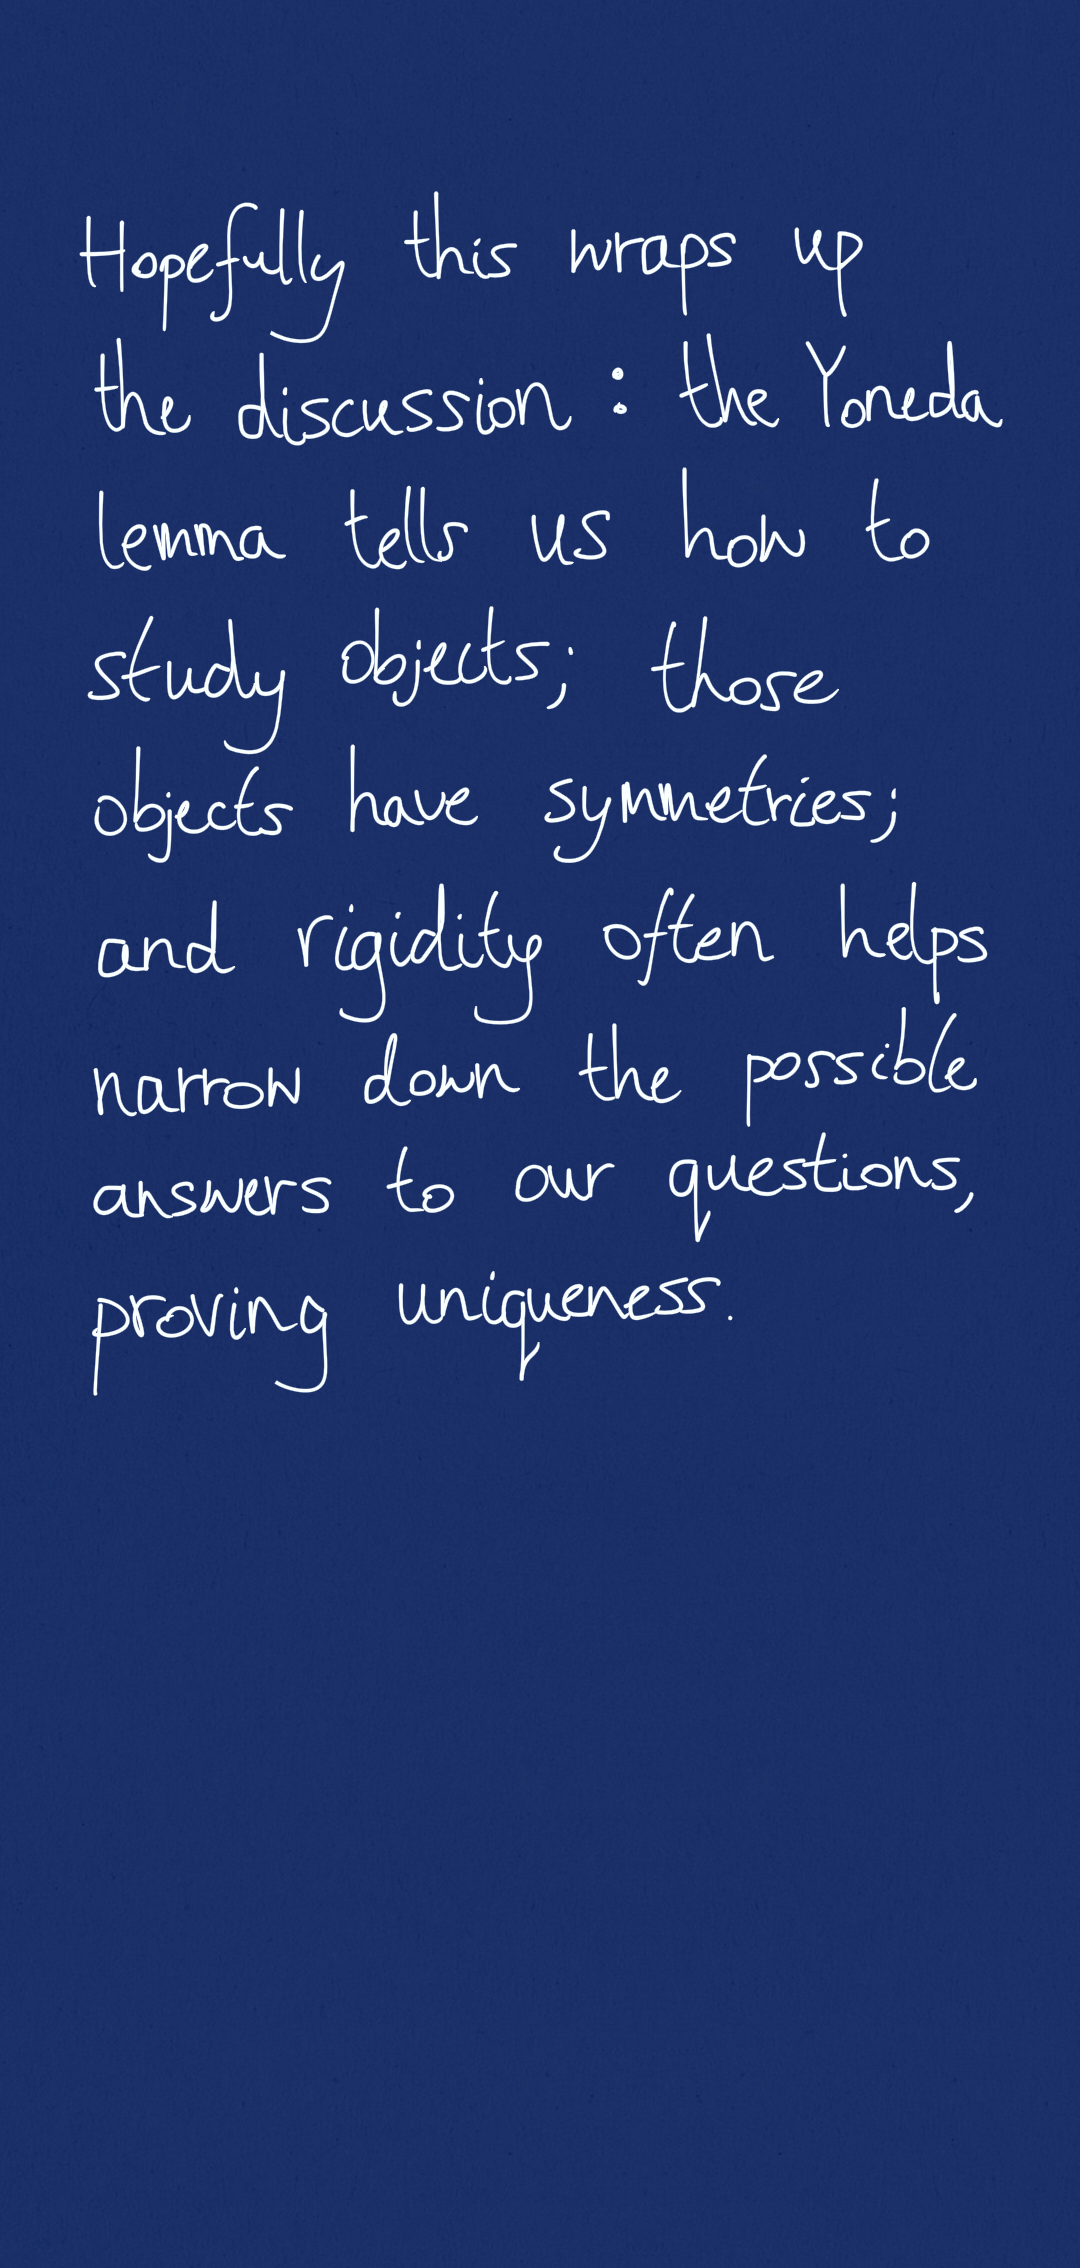 Hopefully this wraps up
the discussion : the Yoneda
lemma tells us how to
study objects; those
objects have symmetries;
and rigidity often helps
narrow down the possible
answers to our questions,
proving uniqueness.